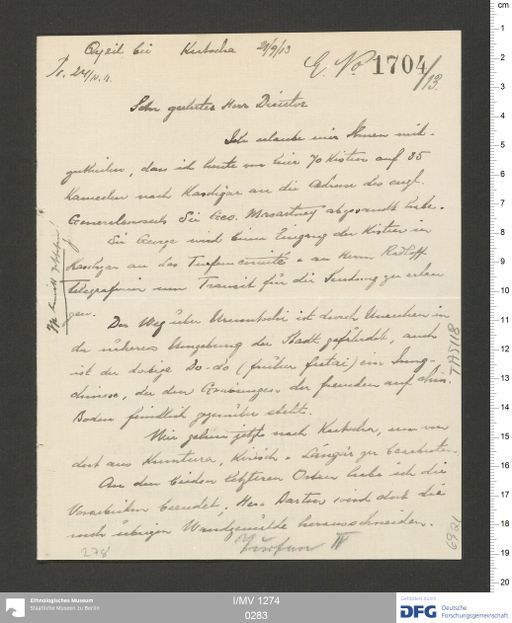 Qyzil bei Kutscha 21/9/13
E. No. 1704/13.
Sehr geehrter Herr Director
Ich erlaube mir Ihnen mit-
zutheilen, dass ich heute von hier 70 Kisten auf 35
Kameelen nach Kaschgar an die Adresse des engl.
Generalconsuls Sir Geo. Macartney abgesandt habe.
Sir George wird beim Eingang der Kisten in
Kaschgar an das Turfancomité u. an Herrn Radloff
telegrafieren um Transit für die Sendung zu erlan
gen.
Der Weg über Urumtschi ist durch Unruhen in
der näheren Umgebung der Stadt gefährdet, auch
ist der dortige Do-do (früher futai) ein Jung-
chinese, der den Grabungen der fremden auf chin.
Boden feindlich gegenüber steht.
Wir gehen jetzt nach Kutscha, um von
dort aus Kumtura, Kirisch u. Simsim zu bearbeiten.
An den beiden letzteren Orten habe ich die
Vorarbeiten beendet, Herr Bartus wird dort die
noch übrigen Wandgemälde herausschneiden.
Turfan IV
278
TA 5118
6921
Ethnologisches Museum
Staatliche Museen zu Berlin
I/MV 1274
0283
Gefördert durch
DFG Deutsche
Forschungsgemeinschaft
cm
1
2
3
4
5
6
7
8
9
10
11
12
13
14
15
16
17
18
19
20